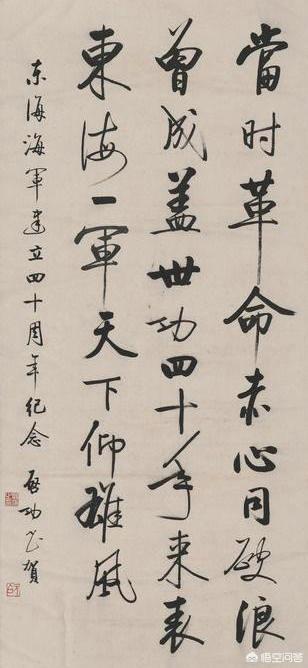 當时革命赤心同破浪
曾成盖世功四十年来表
東海一軍天下仰雄風
东海海軍建立四十周年纪念 启功賀
悟空问答